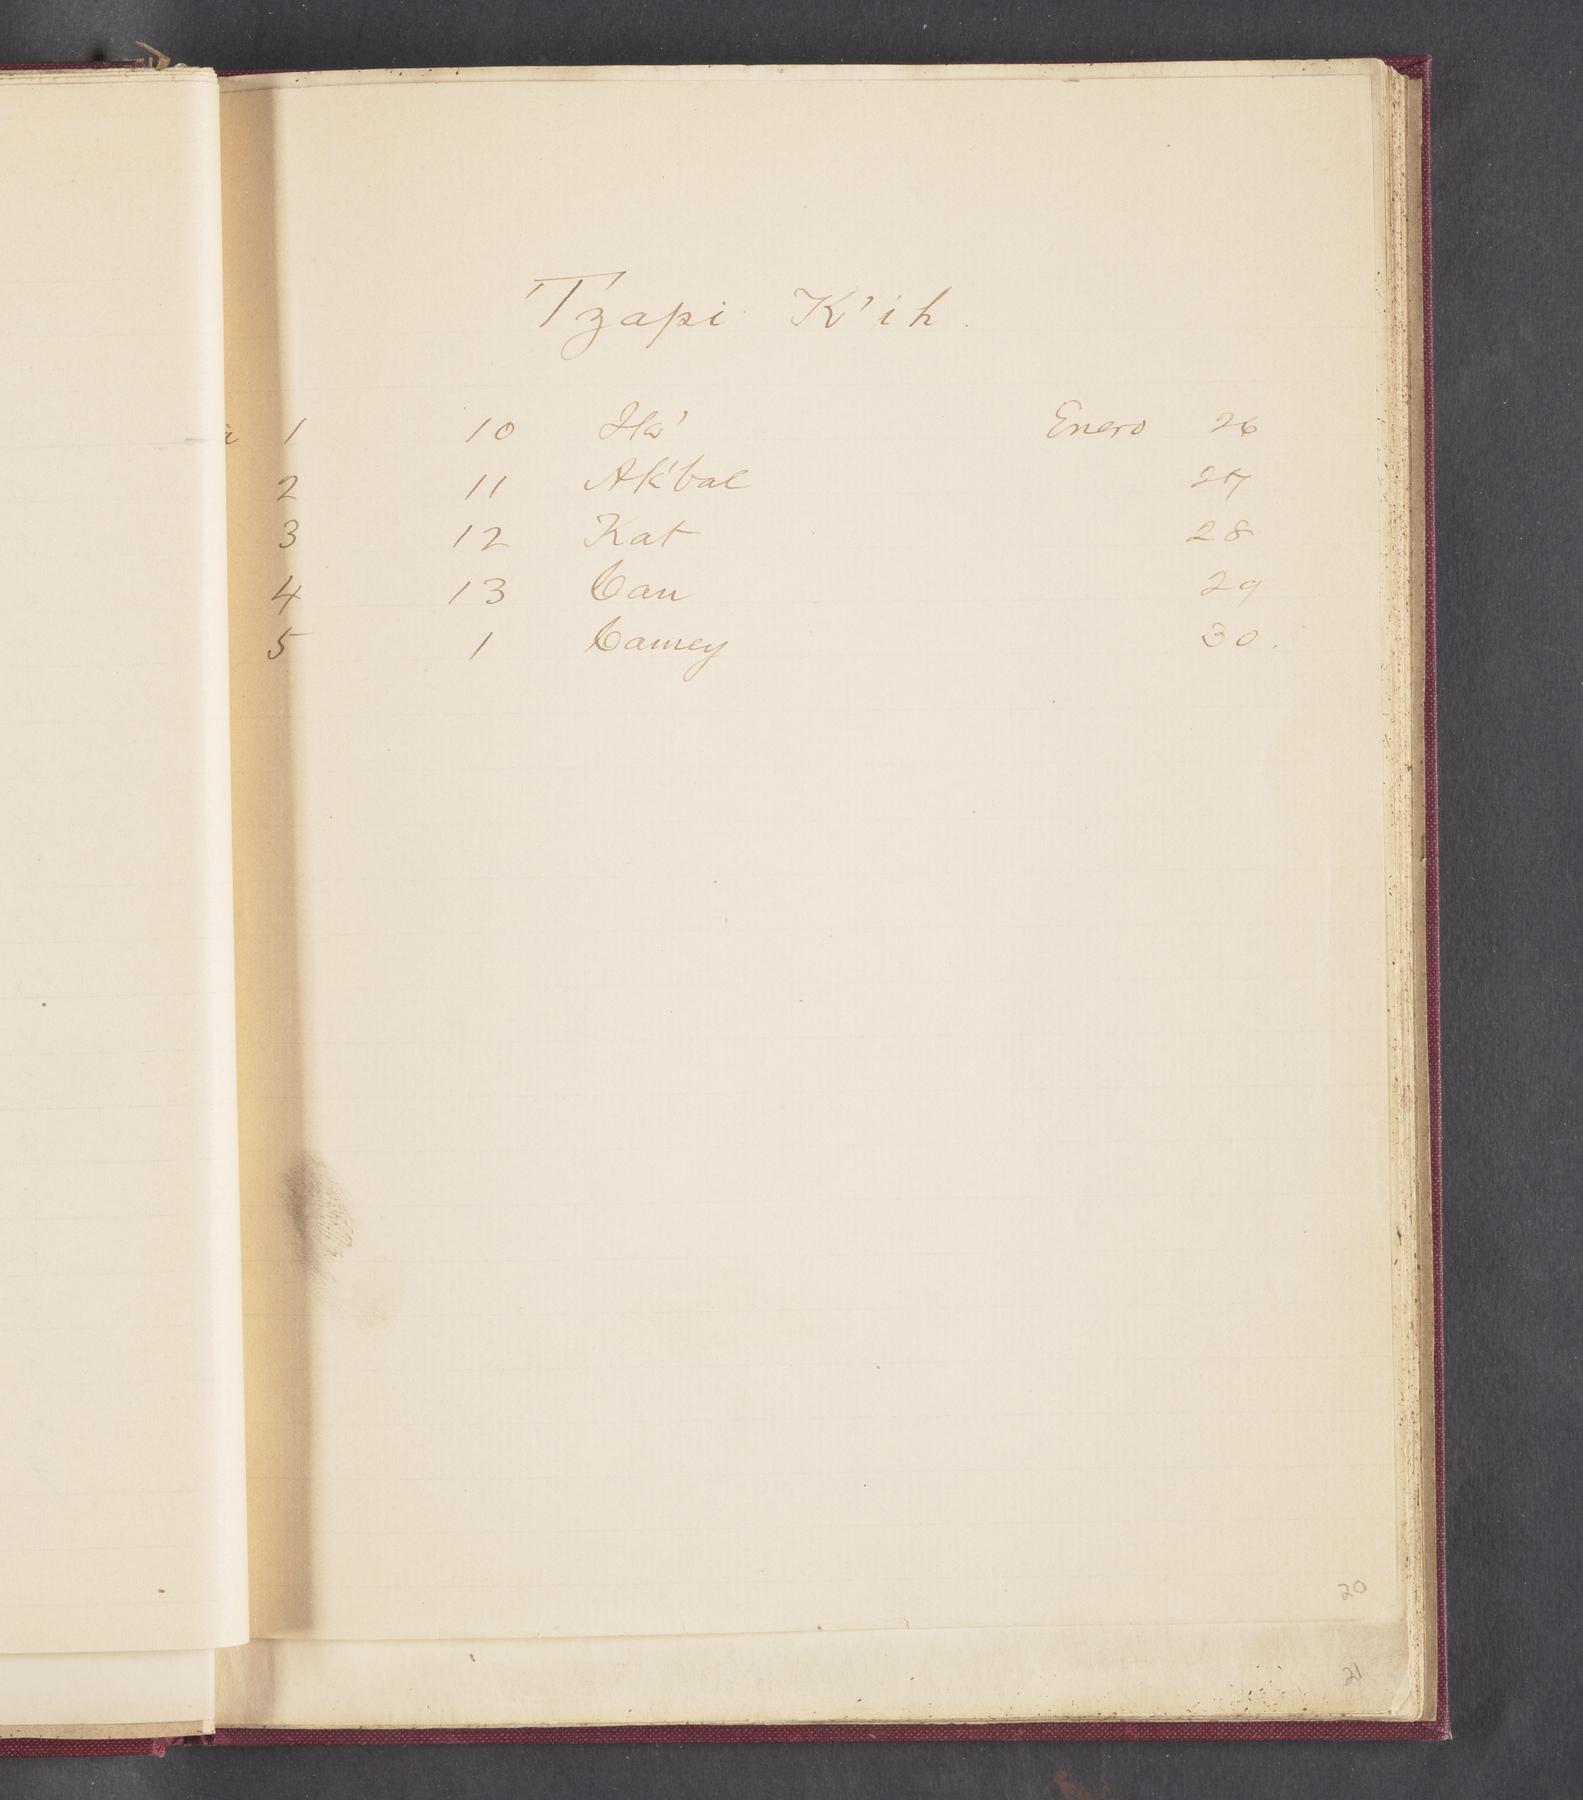 Tzapi K'ih.
1 10 Ik' Enero 26
2 11 Ak'bal 27
3 12 Kat 28
4 13 Can 29
5 1 Camey 30.
20
21